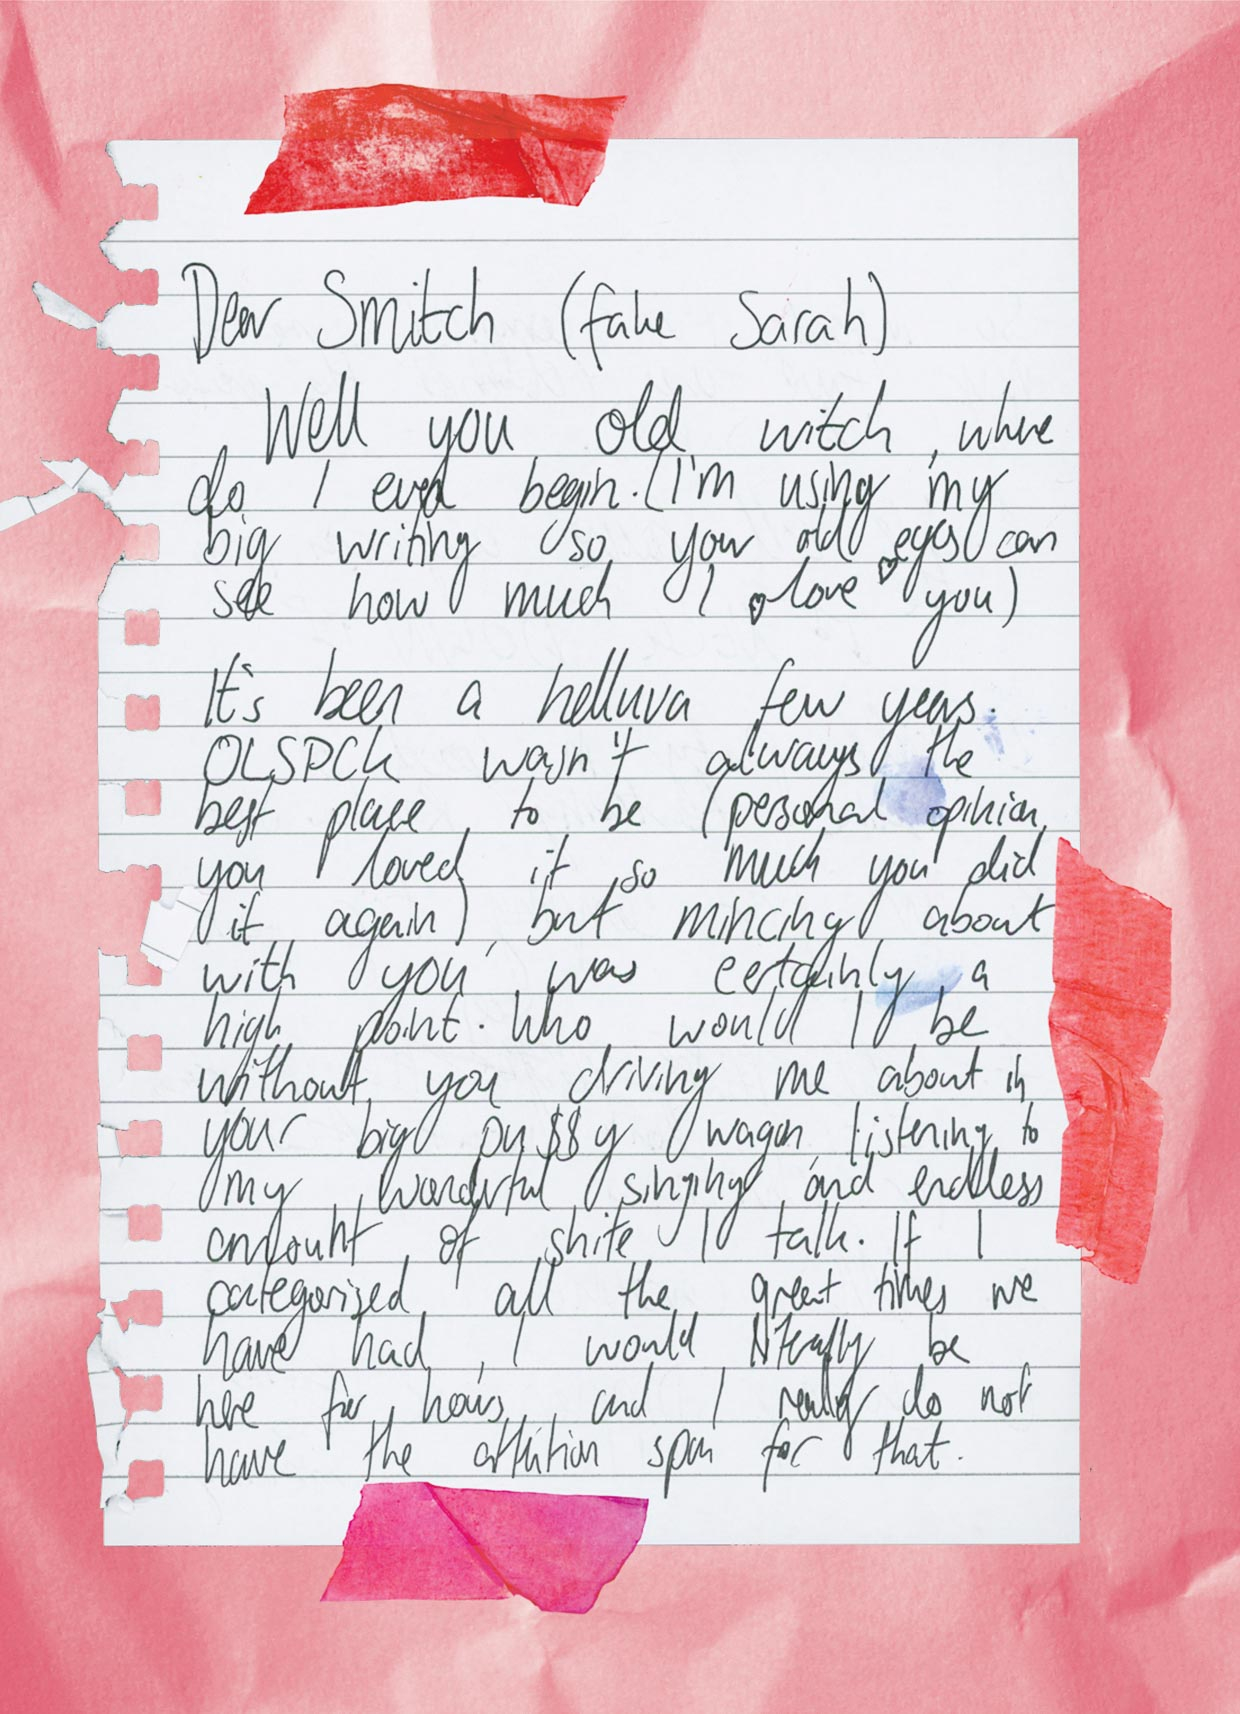 Dear Smitch (fake Sarah)
Well you old witch, where
do I even begin. (I'm using my
big writing so your old eyes can
see how much I love you)
It's been a helluva few years.
OLSPCK wasn't always the
best place to be (personal opinion,
you loved it so much you did
it again), but mincing about
with you was certainly a
high point. Who would I be
without you driving me about in
your big pu$$y wagon, listening to
my wonderful singing and endless
amount of shite I talk. If I
categorised all the great times we
have had, I would literally be
here for hours, and I really do not
have the attention span for that.